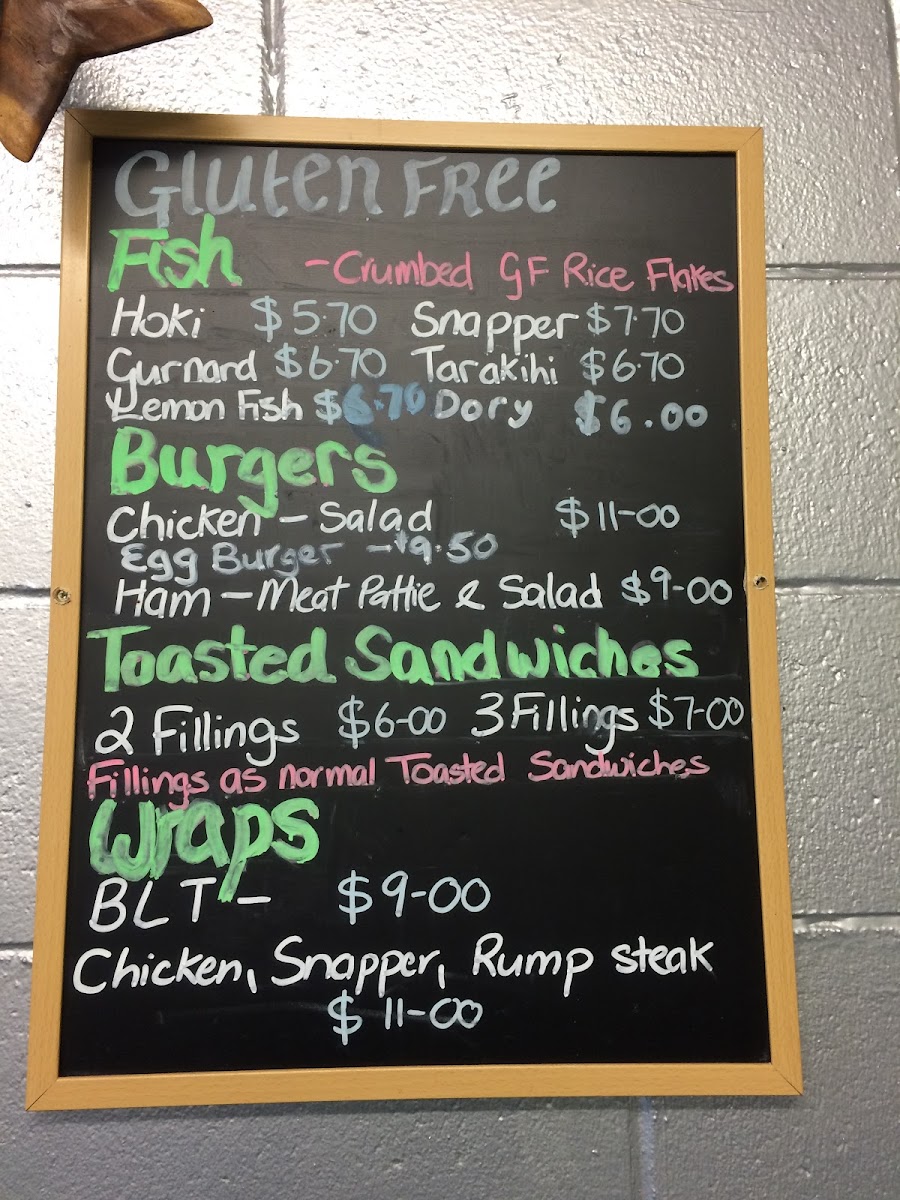 Gluten FRee
Fish -Crumbed GF Rice Flakes
Hoki $5.70 Snapper $7.70
Gurnard $6.70 Tarakihi $6.70
Lemon Fish $6.70 Dory $6.00
Burgers
Chicken - Salad $11-00
Egg Burger - $9.50
Ham - Meat Pattie & Salad $9-00
Toasted Sandwiches
2 Fillings $6-00 3 Fillings $7-00
Fillings as normal Toasted Sandwiches
Wraps
BLT - $9-00
Chicken, Snapper, Rump steak
$11-00